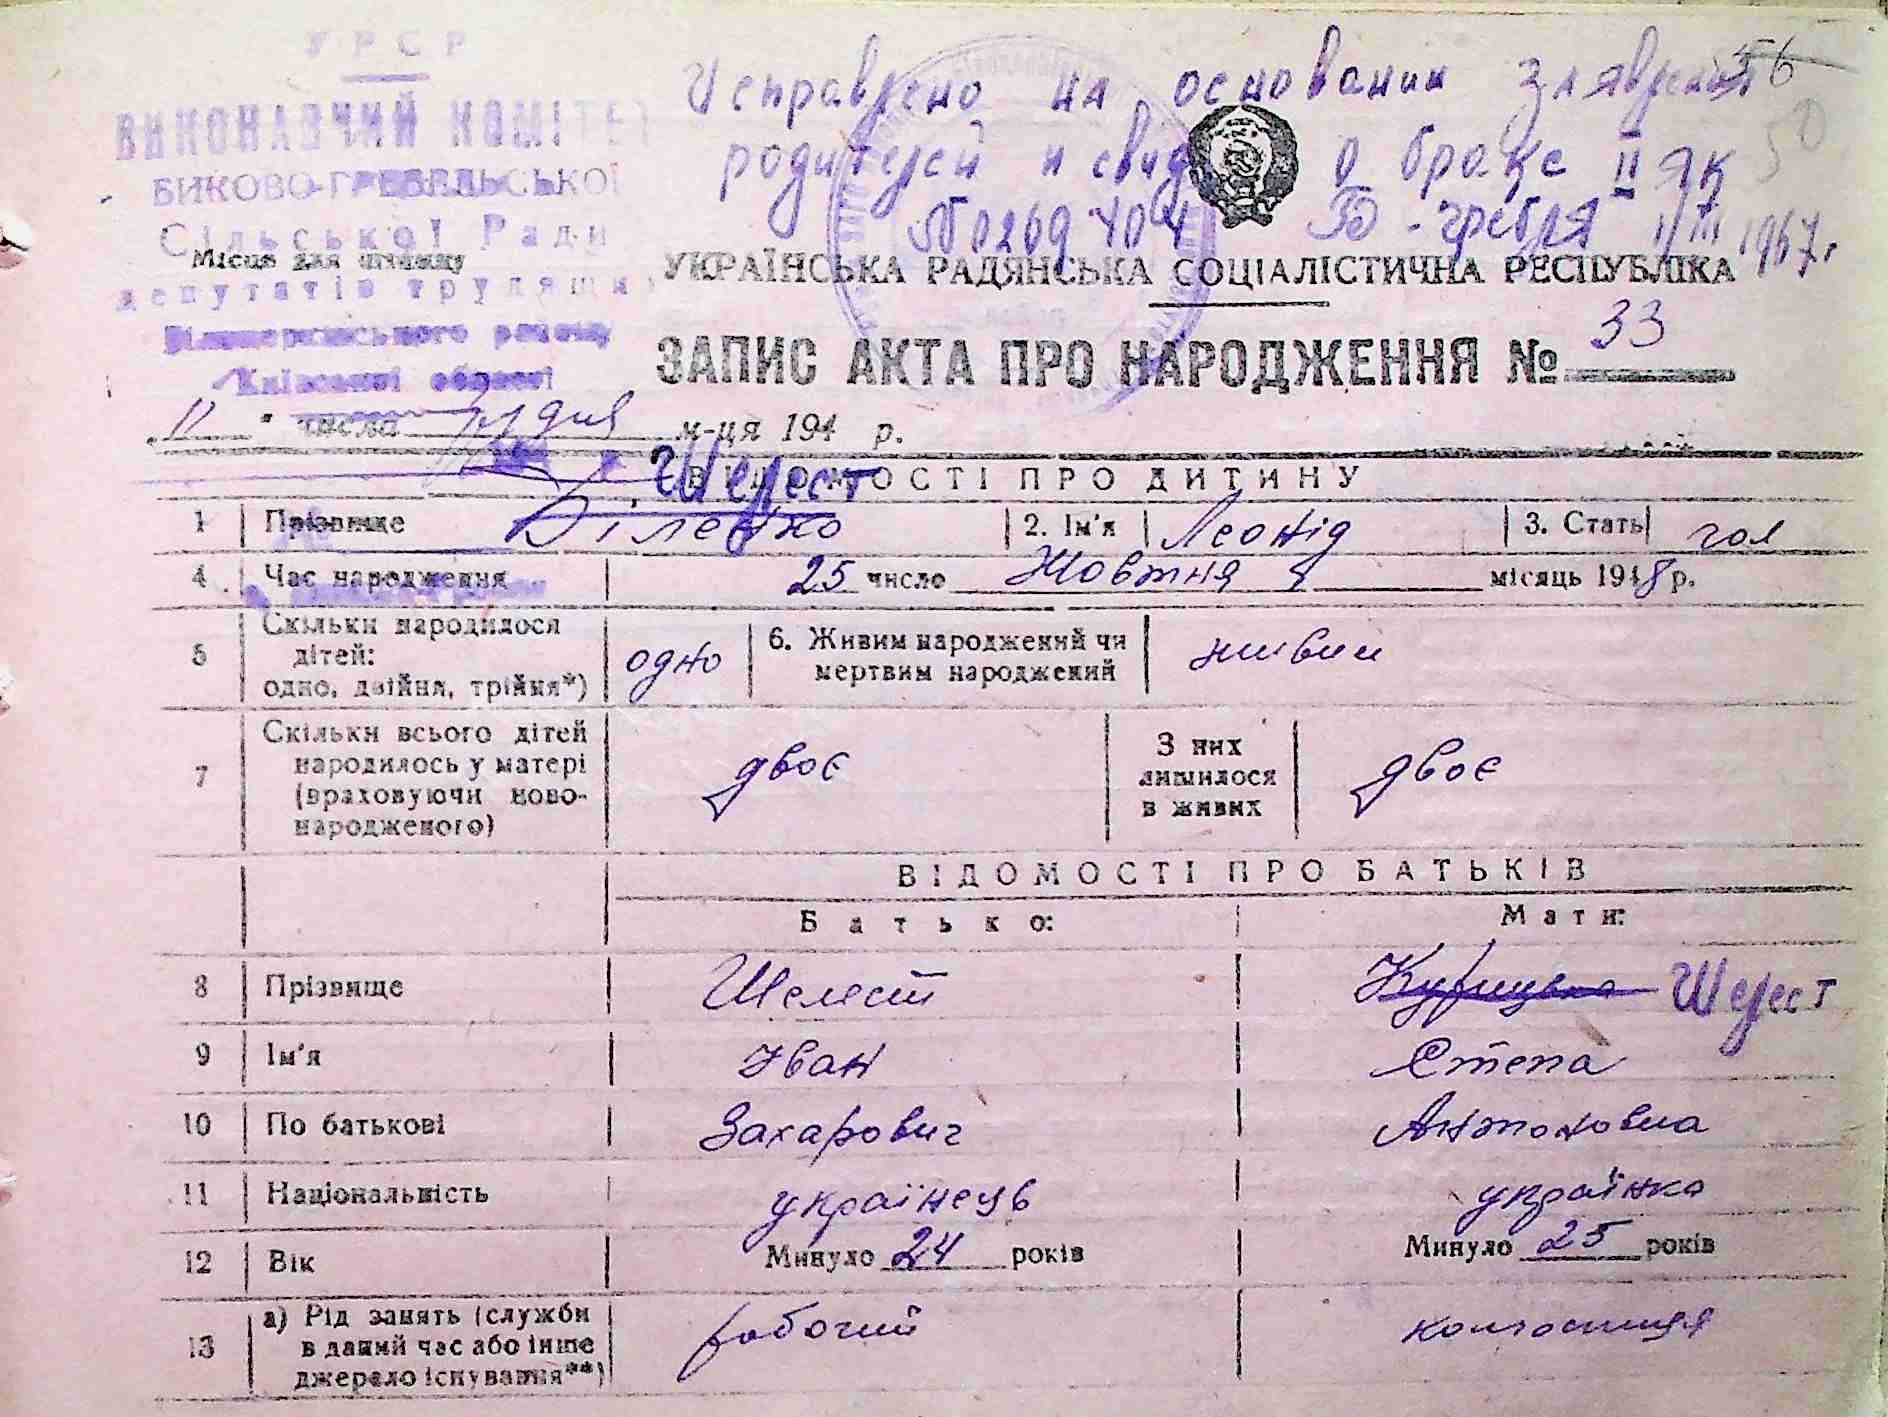 УРСР
ВИКОНАВЧИЙ КОМІТЕТ
БИКОВО-ГРЕБЕЛЬСЬКОЇ
Сільської Ради
Місце для штампу
депутатів трудящих
Білоцерківського району
Київської області
Исправлено на основании заявления
родителей и свид о браке II ЯК
56
50
Б-Гребля 1/III 1967 г
УКРАЇНСЬКА РАДЯНСЬКА СОЦІАЛІСТИЧНА РЕСПУБЛІКА
ЗАПИС АКТА ПРО НАРОДЖЕННЯ № 33
11 числа грудня м-ця 194 р.
Шелест
ВІДОМОСТІ ПРО ДИТИНУ
1 Прізвище Біленко 2. Ім'я Леонід 3. Стать чол
4 Час народження 25 число Жовтня місяць 1948 р.
5 Скільки народилося дітей: одно, двійня, трійня*) одно 6. Живим народжений чи мертвим народжений живим
7 Скільки всього дітей народилось у матері (враховуючи ново-народженого) двоє З них лишилося в живих двоє
ВІДОМОСТІ ПРО БАТЬКІВ
Батько: Мати:
8 Прізвище Шелест Шелест
9 Ім'я Іван Степа
10 По батькові Захарович Антоновна
11 Національність українець українка
12 Вік Минуло 24 років Минуло 25 років
13 а) Рід занять (служби в даний час або інше джерело існування**) рабочий колгоспниця